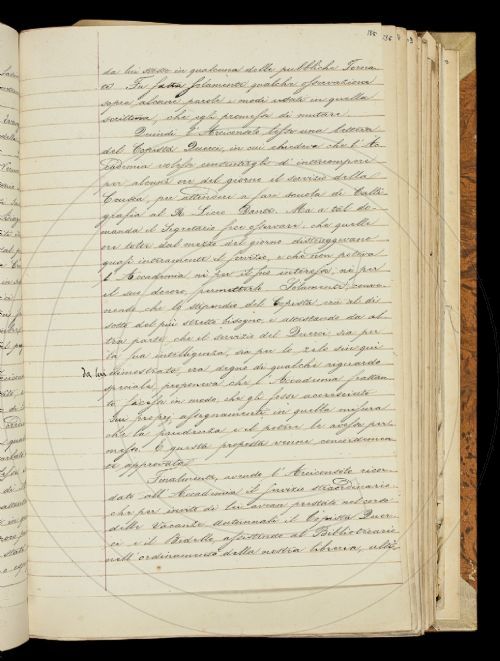 da lui stesso in qualcuna delle pubbliche Torna-
te. Fu fatta solamente qualche osservazione
sopra alcune parole e modi usati in quella
scrittura, che egli promise di mutare.
Quindi l'Arciconsolo lesse una lettera
del Copista Querci, in cui chiedeva che l'Ac-
cademia volesse contentarsi di interrompere
per alcune ore del giorno il servizio della
Crusca, per attendere a fare scuola di Calli-
grafia al R. Liceo Dante. Ma a tal do-
manda il Segretario fece osservare, che quelle
ore tolte dal mezzo del giorno distruggevano
quasi interamente il servizio, e che non poteva
l'Accademia nè per il suo interesse, nè per
il suo decoro, permetterlo. Solamente, conve-
nendo che lo stipendio del Copista era al di
sotto del più stretto bisogno, e attestando da al-
tra parte, che il servizio del Querci, sia per
la sua intelligenza, sia per lo zelo sin qui
da lui dimostrato, era degno di qualche riguardo
speciale, proponeva che l'Accademia frattan-
to facesse in modo, che gli fosse accresciuto
sui propri assegnamenti, in quella misura
che la prudenza e il potere le avesse per-
messo. E questa proposta venne concordemen-
te approvata.
Finalmente, avendo l'Arciconsolo ricor-
dato all'Accademia il servizio straordinario
che per invito di lui avean prestato nel corso
delle Vacanze autunnali il Copista Quer-
ci e il Bidello, assistendo al Bibliotecario
nell'ordinamento della nostra libreria,